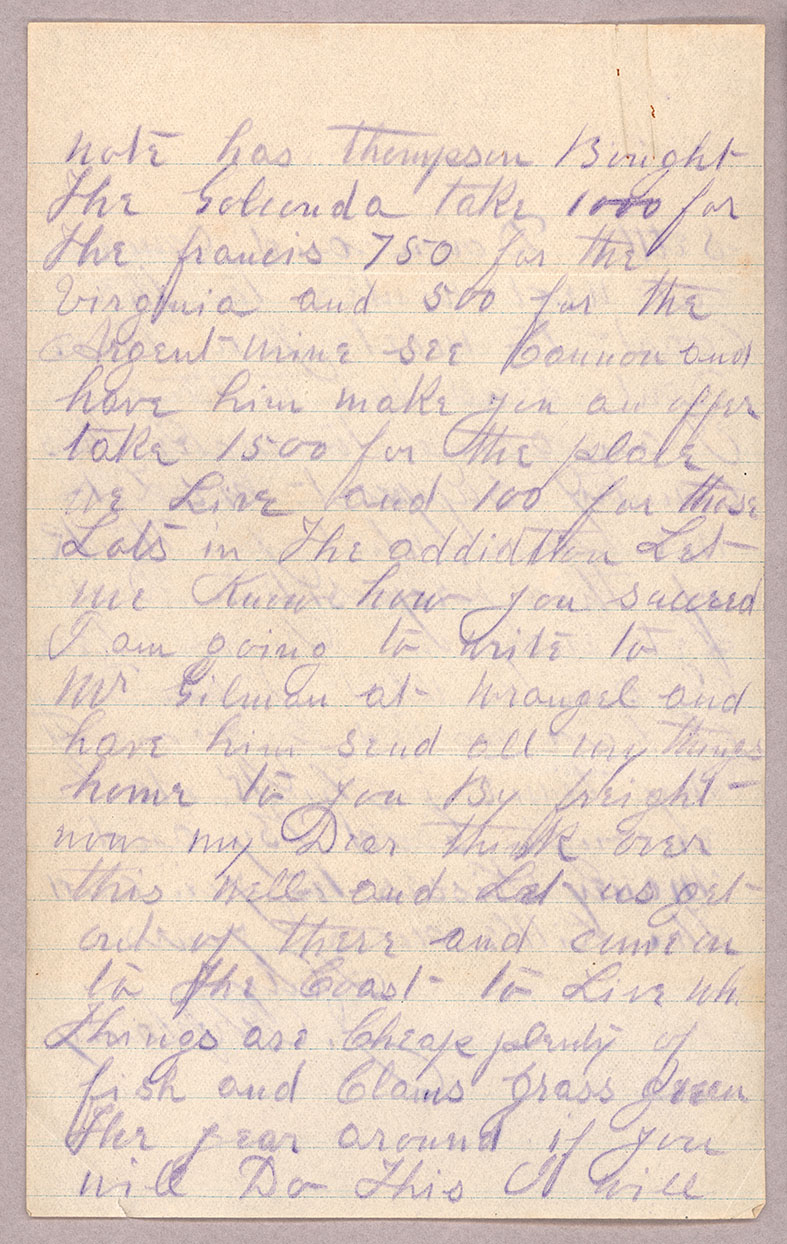 note has Thompson Bought
The Golconda take 1000 for
The francis 750 for the
Virginia and 500 for the
Argent mine see Cannon and
have him make you an offer
take 1500 for the place
we Live and 100 for those
Lots in The addidtion Let
me Know how you succeed
I am going to write to
Mr Gilman at Wrangel and
have him send all my things
home to you By freight
now my Dear think over
this Well and Let us get
out of there and come on
to the Coast to Live wh
Things are Cheap plenty of
fish and Clams grass green
The year around if you
will Do This I will